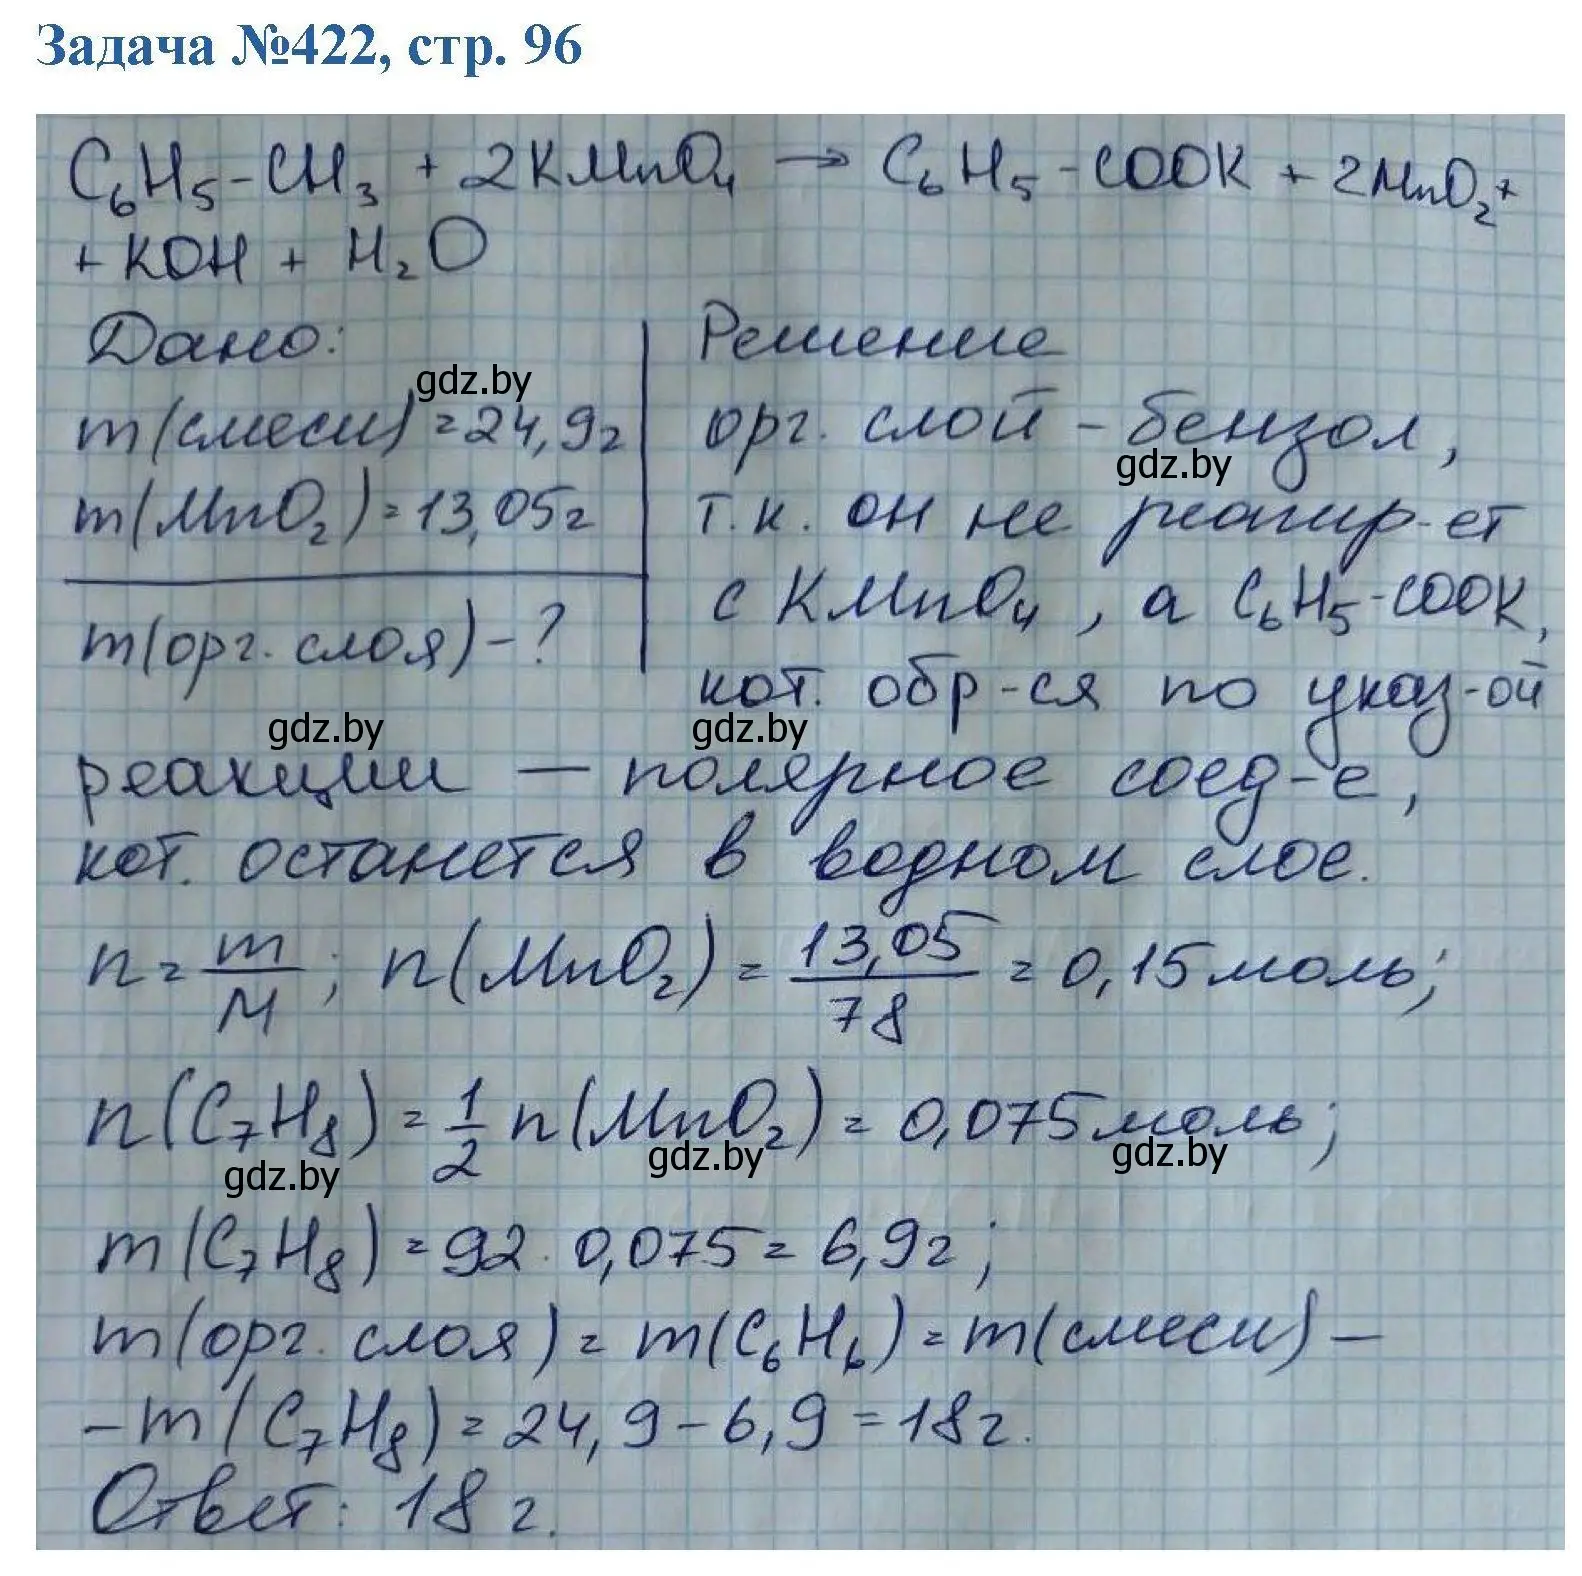 Задача №422, стр. 96
C₆H₅-CH₃ + 2KMnO₄ → C₆H₅-COOK + 2MnO₂ +
+ KOH + H₂O
Дано:
Решение
gdz.by
m(смеси) = 24,9г
орг. слой - бензол,
gdz.by
m(MnO₂) = 13,05г
т.к. он не реагир-ет
с KMnO₄, а C₆H₅-COOK,
m(орг. слоя) - ?
кот. обр-ся по указ-ой
gdz.by gdz.by
реакции — полярное соед-е,
кот. останется в водном слое.
n = m/M; n(MnO₂) = 13,05/78 = 0,15 моль;
n(C₇H₈) = 1/2 n(MnO₂) = 0,075 моль;
gdz.by gdz.by gdz.by
m(C₇H₈) = 92 · 0,075 = 6,9г;
m(орг. слоя) = m(C₆H₆) = m(смеси) -
- m(C₇H₈) = 24,9 - 6,9 = 18г.
Ответ: 18 г.